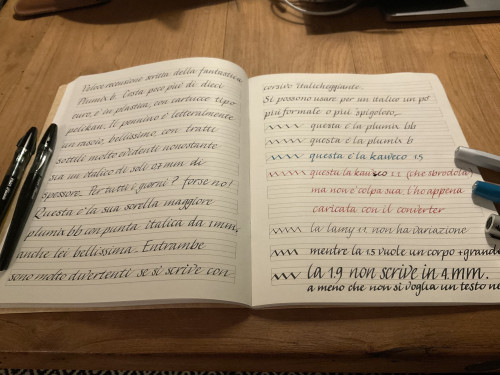 Breve recensione scritta della fantastica
Plumix b. Costa poco più di dieci
euro, è in plastica, con cartucce tipo
pelikan. Il pennino è letteralmente
un rasoio, bellissime, con tratti
sottili molto evidenti nonostante
sia un italico di soli 0.7 mm di
spessore. Per tutti i giorni? forse no!
Questa è la sua sorella maggiore
plumix bb con punta italica da 1 mm,
anche lei bellissima. Entrambe
sono molto divertenti se si scrive con
corsivo italicheggiante.
Si possono usare per un italico un po'
più formale o più spigoloso,
questa è la plumix bb
questa è la plumix b
questa è la kaweco 1.5
questa la kaweco 1.1 (che sbrodola)
ma non è colpa sua: l'ho appena
caricata con il converter
la lamy 1.1 non ha variazione
mentre la 1.5 vuole un corpo + grande
la 1.9 non scrive in 4 mm.
a meno che non si voglia un testo